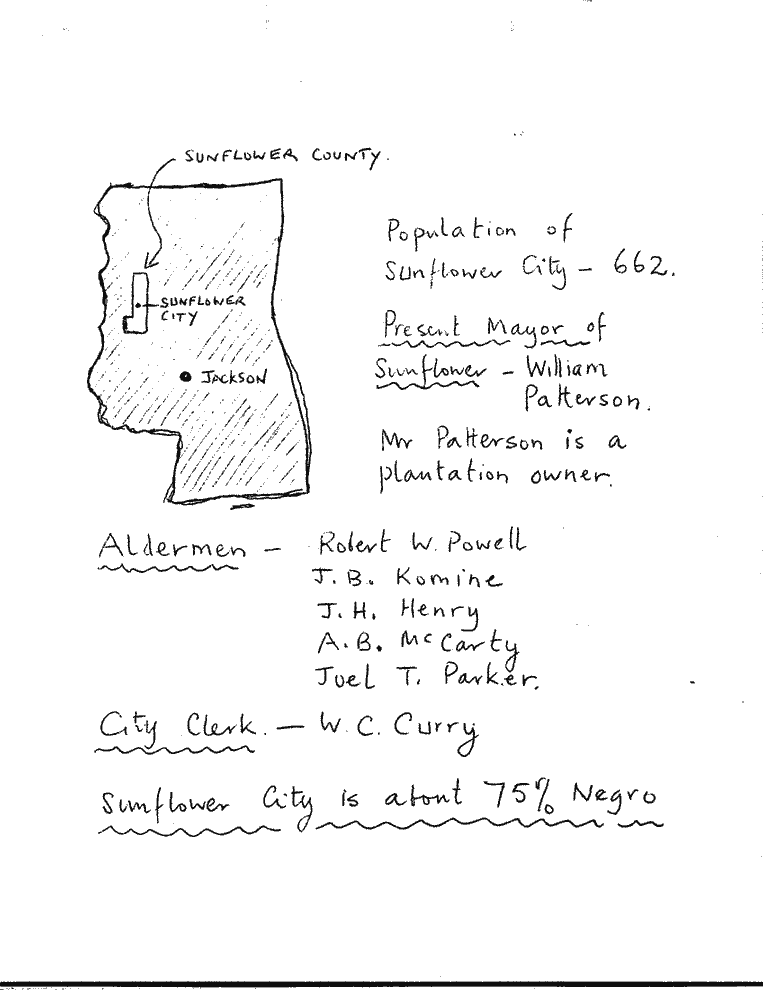 SUNFLOWER COUNTY.
SUNFLOWER
CITY
JACKSON
Population of
Sunflower City - 662.
Present Mayor of
Sunflower - William
Patterson.
Mr Patterson is a
plantation owner.
Aldermen - Robert W. Powell
J.B. Komine
J.H. Henry
A.B. McCarty
Joel T. Parker.
City Clerk. - W.C. Curry
Sunflower City is about 75% Negro